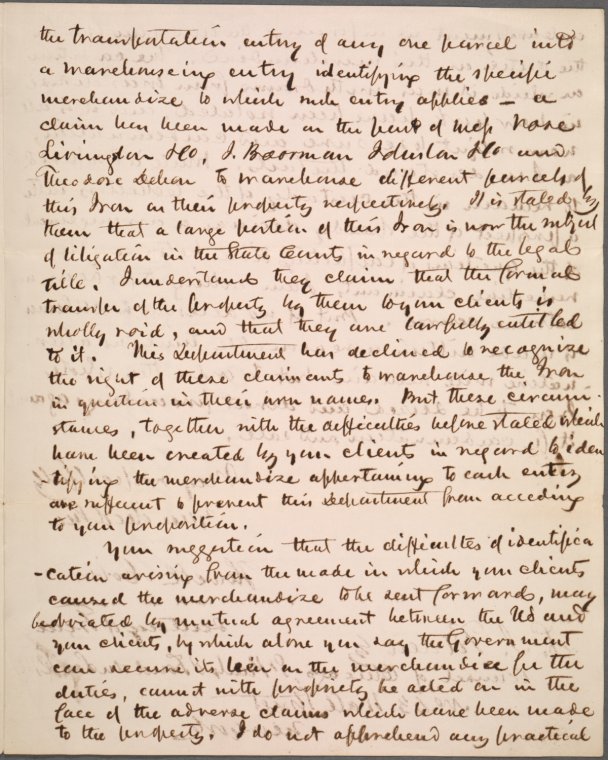 the transportation entry of any one parcel into
a warehouseing entry identifying the specific
merchandize to which such entry applies — a
claim has been made on the part of Mess Rose
Livingston & Co, J. Boorman Johnston & Co and
Theodore Dehon to warehouse different parcels of
this Iron as their property respectively. It is stated by
them that a large portion of this Iron is now the subject
of litigation in the State Courts in regard to the legal
title. I understand they claim that the formal
transfer of the property by them to your clients is
wholly void, and that they are lawfully entitled
to it. This Department has declined to recognize
the right of these claimants to warehouse the Iron
in question in their own names. But these circum-
stances, together with the difficulties before stated which
have been created by your clients in regard to iden
tifying the merchandize appertaining to each entry
are sufficent to prevent this Department from acceding
to your proposition.
Your suggestion that the difficulties of identifica
-cation arising from the mode in which your clients
caused the merchandize to be sent forward, may
be obviated by mutual agreement between the US and
your clients, by which alone you say the Government
can secure its lein on this merchandize for the
duties, cannot with propriety be acted on in the
face of the adverse claims which have been made
to the property. I do not apprehend any practical